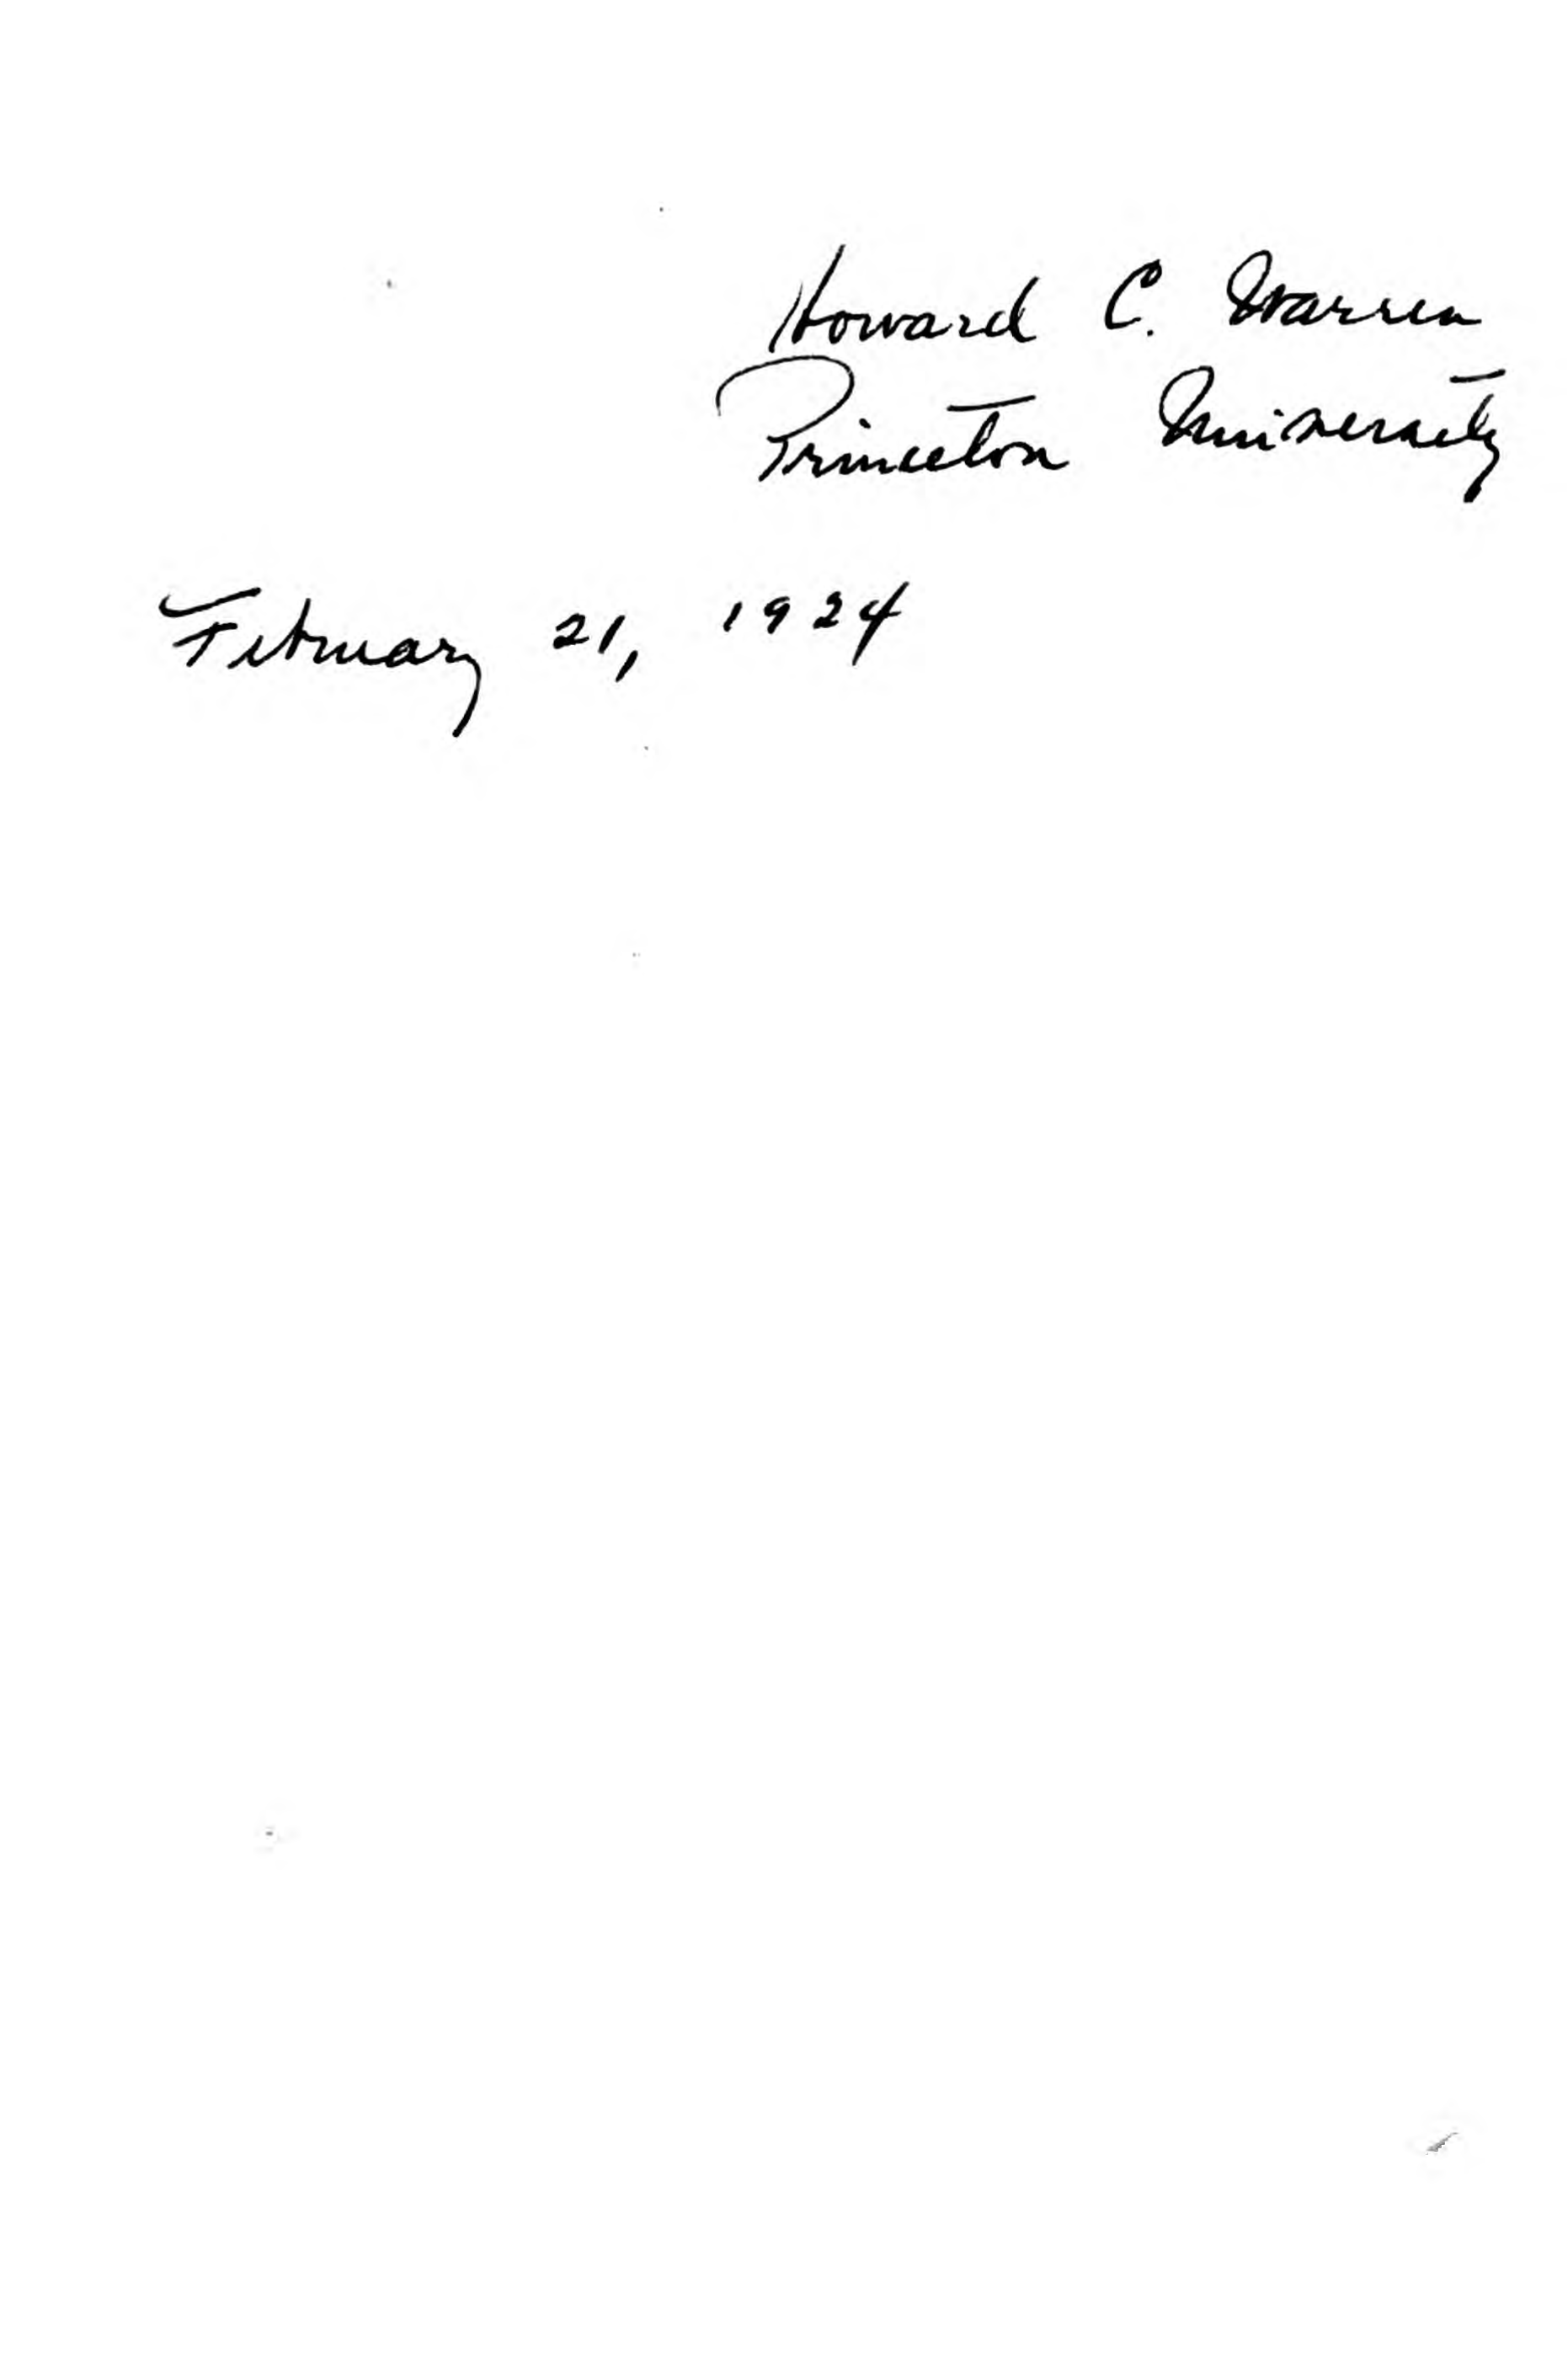 Howard C. Warren
Princeton University
February 21, 1924